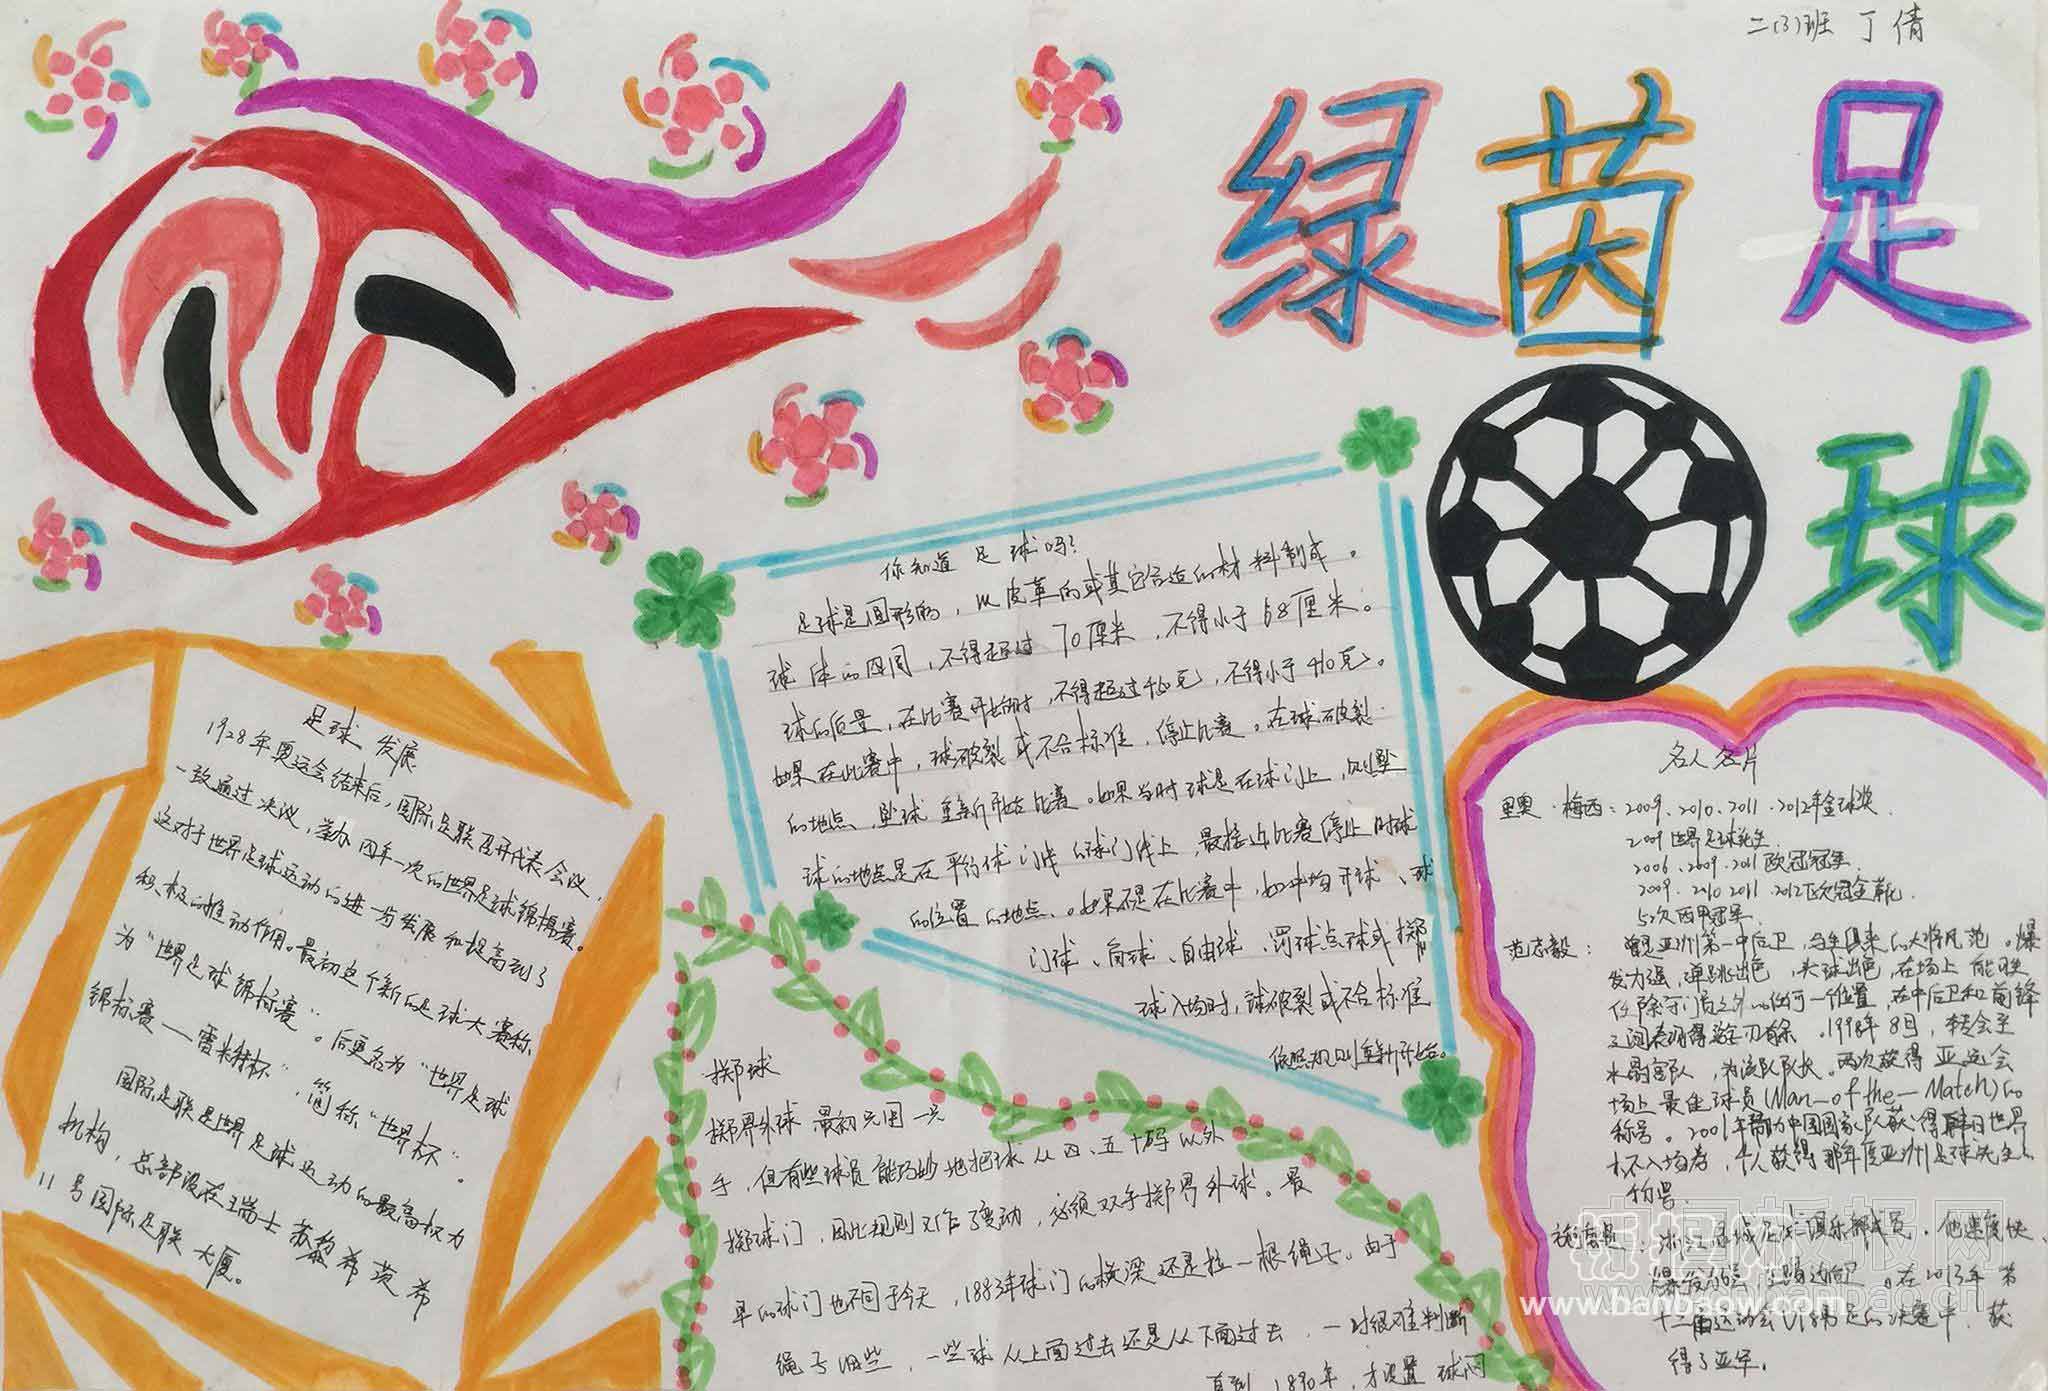 二(3)班 丁倩
绿茵足
球
你知道足球吗?
足球是圆形的,以皮革的或其它合适的材料制成。
球体的四周,不得超过70厘米,不得小于68厘米。
球的质量,在比赛开始时,不得超过450克,不得小于410克。
如果在比赛中,球破裂或不合标准,停止比赛。在球破裂
的地点,坠球重新开始比赛。如果当时球是在球门上,则坠
球的地点是在平行球门线的球门线上,最接近比赛停止时球
的位置的地点。如果不是在比赛中,如中场开球、球
门球、角球、自由球、罚球点球或掷
球入场时,球破裂或不合标准
依照规则重新开始。
足球 发展
1928年奥运会结束后,国际足联召开代表会议,
一致通过决议,举办四年一次的世界足球锦标赛。
这对于世界足球运动的进一步发展和提高到了
积极的推动作用。最初这个新的足球大赛称
为“世界足球锦标赛”。后更名为“世界足球
锦标赛—雷米特杯”,简称“世界杯”。
国际足联是世界足球运动的最高权力
机构,总部设在瑞士苏黎希茨希
11号国际足联大厦。
掷球
掷界外球最初只用一只
手,但有些球员能巧妙地把球从四、五十码以外
掷球门,因此规则又作了变动,必须双手掷界外球。最
早的球门也不同于今天,1883年球门的横梁还是拉一根绳子。由于
绳子旧些,一些球从上面过去还是从下面过去,一时很难判断
直到1890年,才设置球网
名人名片
里奥·梅西:2009、2010、2011、2012年金球奖.
2009世界足球先生.
2006、2009、2011欧冠冠军.
2009、2010 2011、2012欧冠金靴.
5次西甲冠军.
范志毅: 曾是亚洲第一中后卫,与生俱来的大将风范。爆
发力强,弹跳出色,头球出色,在场上能胜
任除守门员之外的任何一个位置,在中后卫和前锋
之间表现得游刃有余。1998年8月,转会至
水晶宫队,为该队队长。两次获得亚运会
场上最佳球员(Man-of-the-Match)的
称号。2001年帮助中国国家队获得韩日世界
杯入场券,个人获得那年度亚洲足球先生的
称号.
俱乐部成员,他速度快、
在2013年第
十二届运动会U18男足的决赛中,获
得了亚军。
板报网
www.banbaow.com